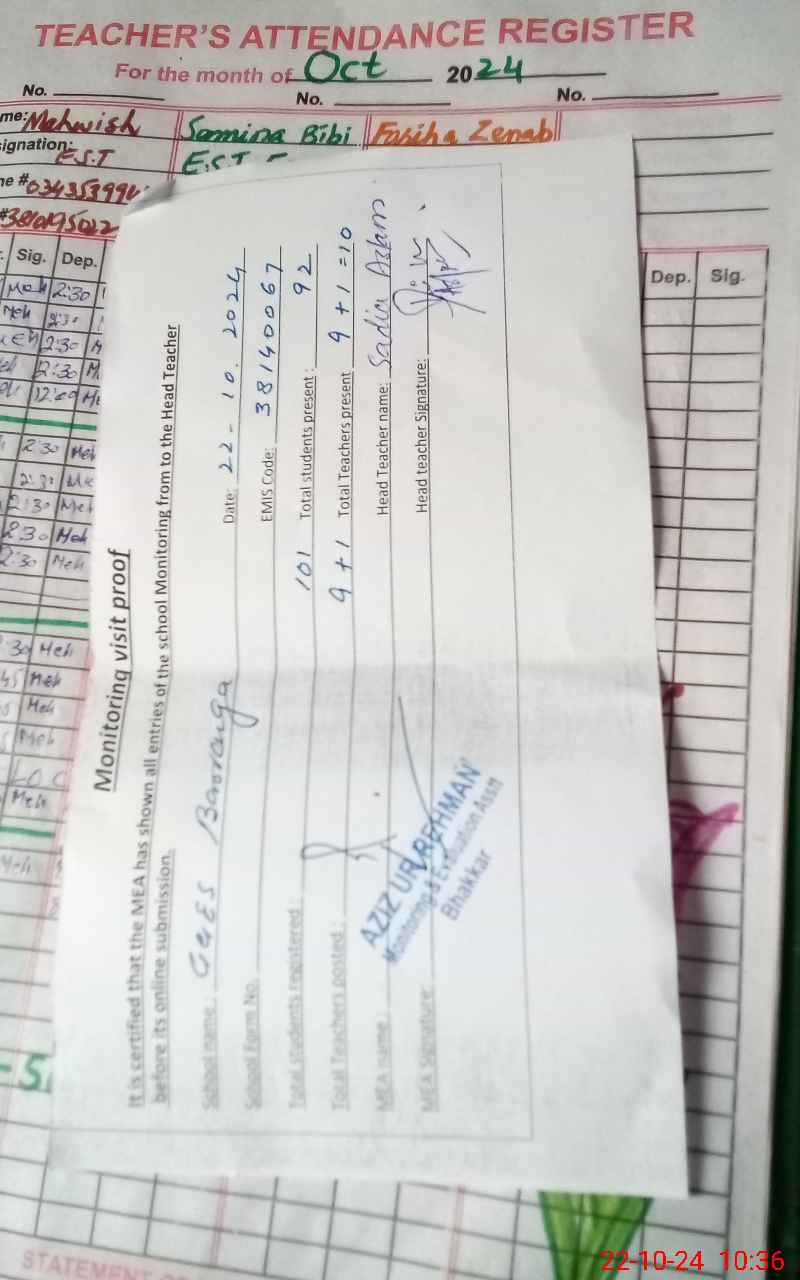 TEACHER'S ATTENDANCE REGISTER
For the month of Oct 2024
No. No. No.
me: Mehwish Samina Bibi Fasiha Zenab
signation: E.S.T E.S.T
ne #
Sig. Dep. Dep. Sig.
Meh 2:30
Meh 2:30
2:30 M
2:30 M
12:00 Me
2:30 Meh
2:30
2:30 Meh
2:30 Meh
2:30 Meh
:30 Meh
45 Meh
Meh
Meh
Meh
Meh
Monitoring visit proof
It is certified that the MEA has shown all entries of the school Monitoring from to the Head Teacher
before its online submission.
School name: Date: 22-10.2024
School Form No. EMIS Code: 38140067
Total students registered: 101 Total students present: 92
Total Teachers posted: 9+1 Total Teachers present 9+1=10
MEA name: Head Teacher name: Sadia Aslam
MEA Signature: Head teacher Signature:
AZIZ UR REHMAN
Monitoring & Evaluation Asstt
Bhakkar
STATEMENT O
22-10-24 10:36